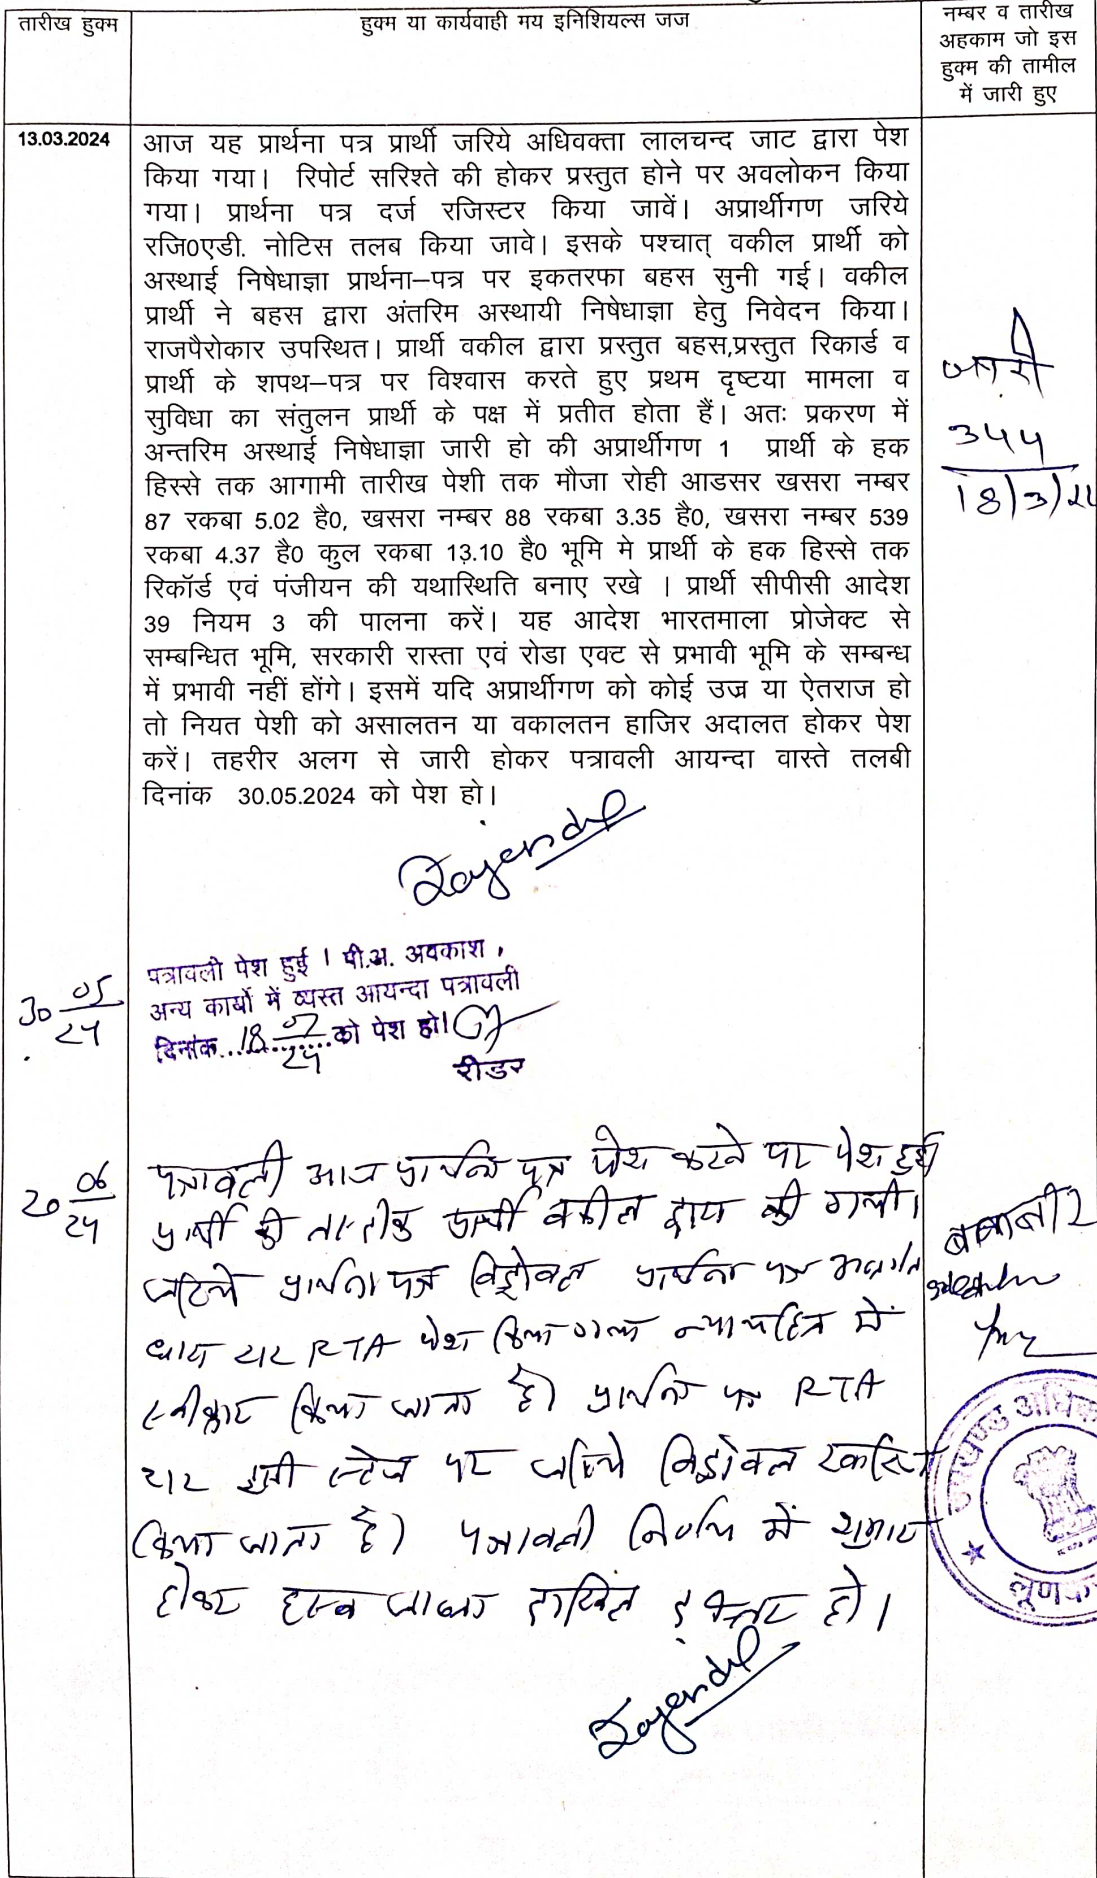 तारीख हुक्म
हुक्म या कार्यवाही मय इनिशियल्स जज
नम्बर व तारीख
अहकाम जो इस
हुक्म की तामील
में जारी हुए
13.03.2024
आज यह प्रार्थना पत्र प्रार्थी जरिये अधिवक्ता लालचन्द जाट द्वारा पेश
किया गया। रिपोर्ट सरिश्ते की होकर प्रस्तुत होने पर अवलोकन किया
गया। प्रार्थना पत्र दर्ज रजिस्टर किया जावें। अप्रार्थीगण जरिये
रजि0एडी. नोटिस तलब किया जावे। इसके पश्चात् वकील प्रार्थी को
अस्थाई निषेधाज्ञा प्रार्थना–पत्र पर इकतरफा बहस सुनी गई। वकील
प्रार्थी ने बहस द्वारा अंतरिम अस्थायी निषेधाज्ञा हेतु निवेदन किया।
राजपैरोकार उपस्थित। प्रार्थी वकील द्वारा प्रस्तुत बहस,प्रस्तुत रिकार्ड व
प्रार्थी के शपथ–पत्र पर विश्वास करते हुए प्रथम दृष्टया मामला व
सुविधा का संतुलन प्रार्थी के पक्ष में प्रतीत होता हैं। अतः प्रकरण में
अन्तरिम अस्थाई निषेधाज्ञा जारी हो की अप्रार्थीगण 1 प्रार्थी के हक
हिस्से तक आगामी तारीख पेशी तक मौजा रोही आडसर खसरा नम्बर
87 रकबा 5.02 है0, खसरा नम्बर 88 रकबा 3.35 है0, खसरा नम्बर 539
रकबा 4.37 है0 कुल रकबा 13.10 है0 भूमि मे प्रार्थी के हक हिस्से तक
रिकॉर्ड एवं पंजीयन की यथास्थिति बनाए रखे । प्रार्थी सीपीसी आदेश
39 नियम 3 की पालना करें। यह आदेश भारतमाला प्रोजेक्ट से
सम्बन्धित भूमि, सरकारी रास्ता एवं रोडा एक्ट से प्रभावी भूमि के सम्बन्ध
में प्रभावी नहीं होंगे। इसमें यदि अप्रार्थीगण को कोई उज्र या ऐतराज हो
तो नियत पेशी को असालतन या वकालतन हाजिर अदालत होकर पेश
करें। तहरीर अलग से जारी होकर पत्रावली आयन्दा वास्ते तलबी
दिनांक 30.05.2024 को पेश हो।
जारी
344
18/3/24
30 05/24
पत्रावली पेश हुई । पी.अ. अवकाश,
अन्य कार्यो में व्यस्त आयन्दा पत्रावली
दिनांक...18 07/24...को पेश हो।
रीडर
20 06/24
पत्रावली आज प्रार्थना पत्र पेश करने पर पेश हुई।
प्रार्थी की तस्दीक प्रार्थी वकील द्वारा की गयी।
जरिये प्रार्थना पत्र विड्रोवल प्रार्थना पत्र अन्तर्गत
धारा 212 RTA पेश किया गया न्यायहित में
स्वीकार किया जाता है। प्रार्थना पत्र RTA
212 इसी स्टेज पर जरिये विड्रोवल खारिज
किया जाता है। पत्रावली निर्णय में शुमार
होकर दाखिल दफ्तर हो।
उपखण्ड अधिका
लूणक